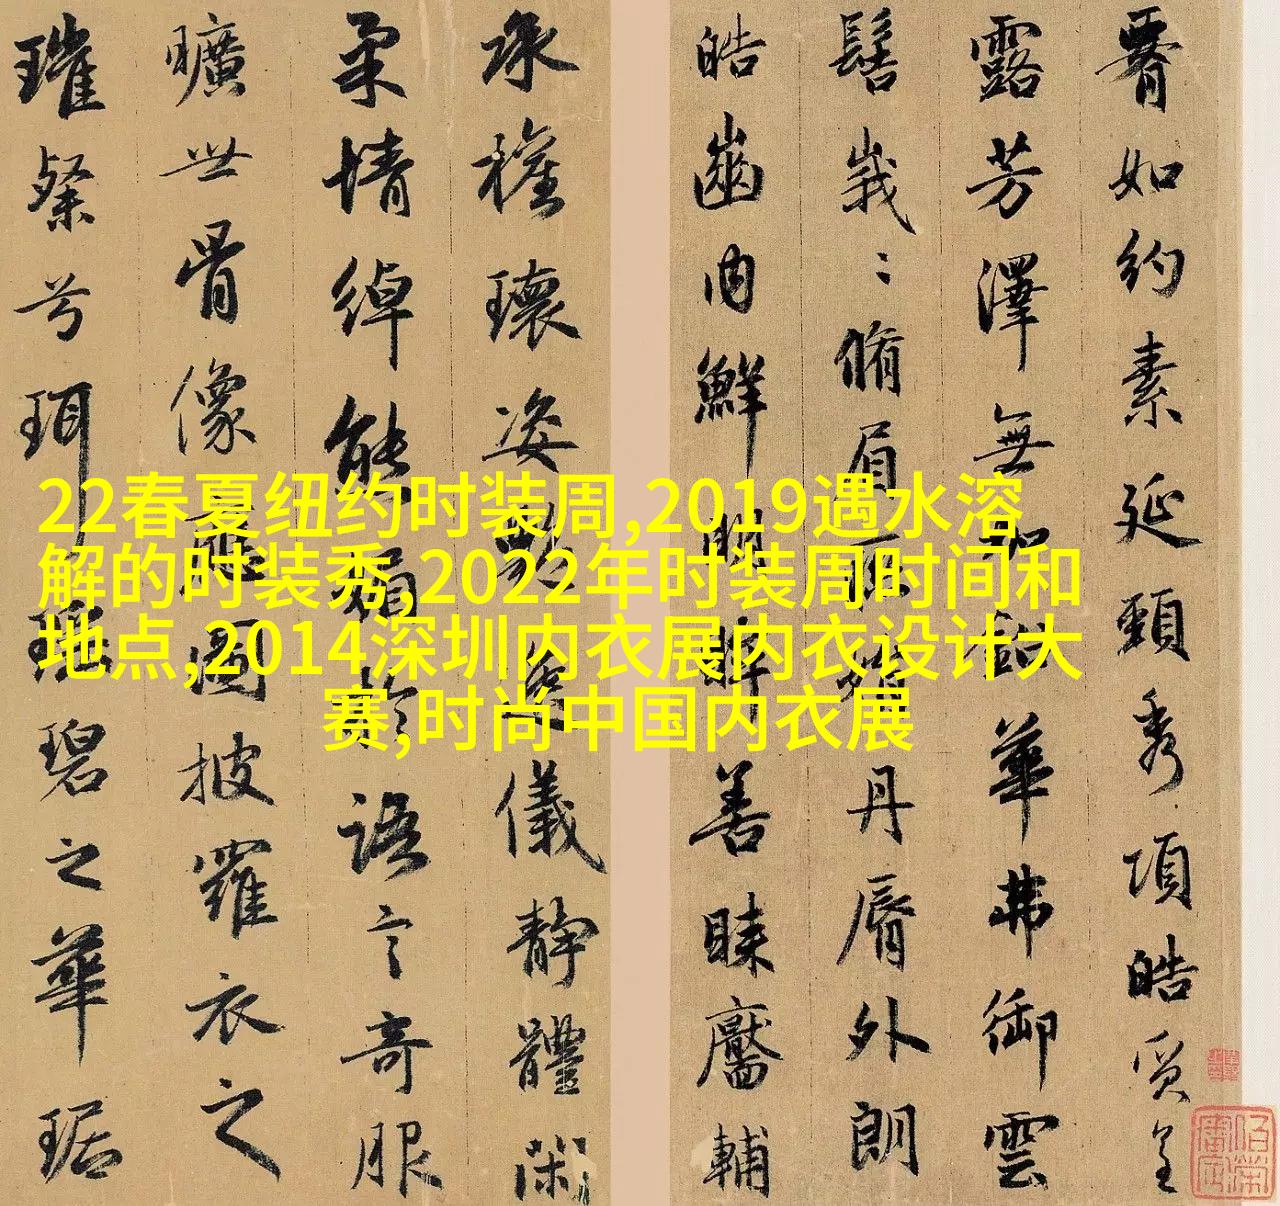 腰如約素延頸秀項皓質呈
露芳澤無加鉛華弗御雲
髻峩〻脩眉聯娟丹脣外朗
皓齒内鮮明眸善睞靨輔
承權瓌姿艷逸儀靜體閑
柔情綽態媚於語言奇服
曠世骨像應圖披羅衣之
璀粲兮珥瑤碧之華琚
22春夏纽约时装周,2019遇水溶
解的时装秀,2022年时装周时间和
地点,2014深圳内衣展内衣设计大
赛,时尚中国内衣展